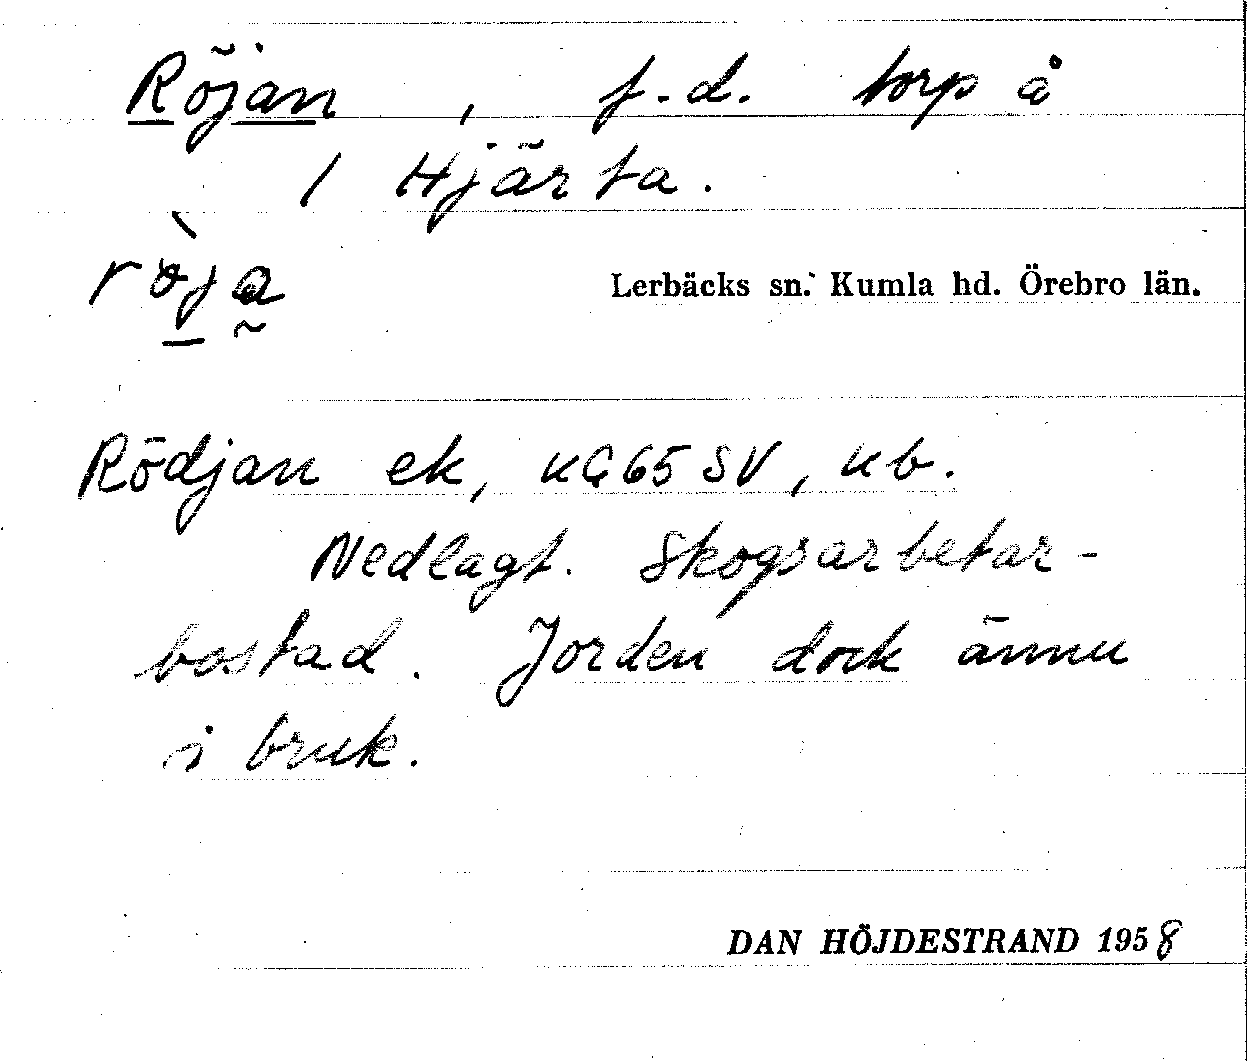 Röjan, f.d. torp å
1 Hjärta.
rö̀ja
Lerbäcks sn. Kumla hd. Örebro län.
Rödjan ek, KG65SV, ub.
Nedlagt. Skogsarbetar-
bostad. Jorden dock ännu
i bruk.
DAN HÖJDESTRAND 1958